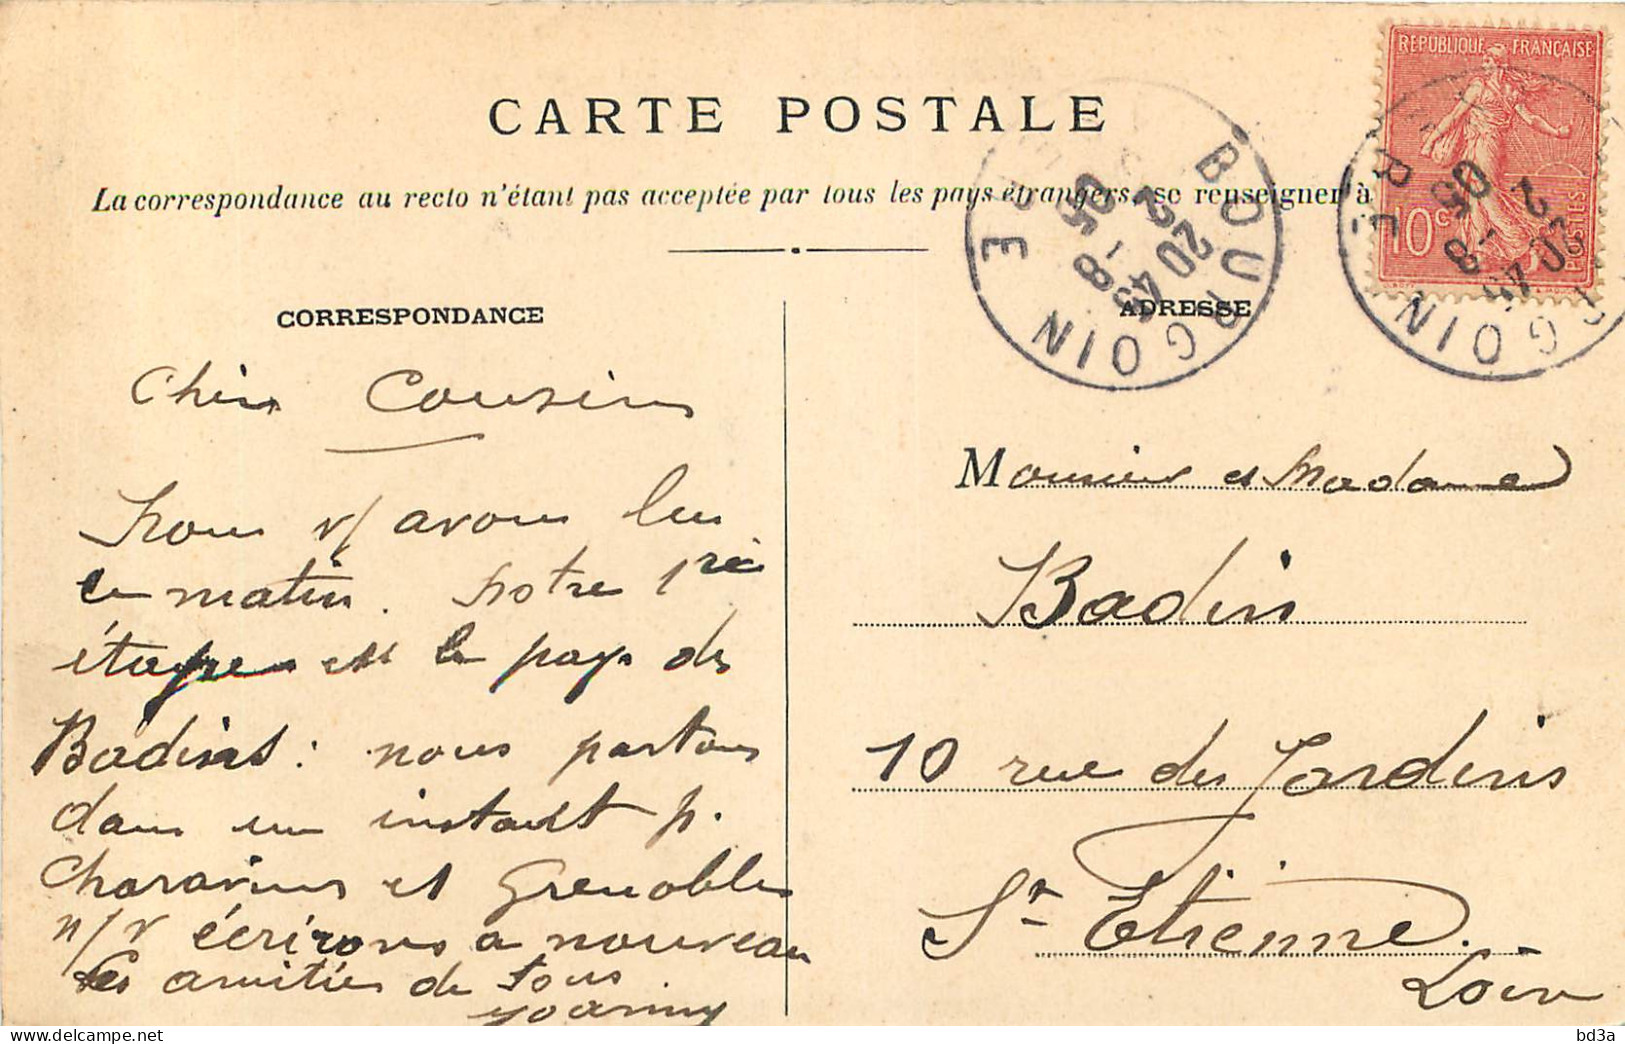 RÉPUBLIQUE FRANÇAISE
10c POSTES
CARTE POSTALE
La correspondance au recto n'étant pas acceptée par tous les pays étrangers, se renseigner à
BOURGOIN
ISERE
20 45
2 - 8
05
BOURGOIN
ISERE
20 45
2 - 8
05
CORRESPONDANCE
Chers Cousins
Nous v/ avons lu
ce matin. Notre 1re
étape est le pays des
Badins : nous partons
dans un instant p.
Charavines et Grenoble
n/ v écrirons a nouveau
Les amitiés de tous
Joanny
ADRESSE
Monsieur et Madame
Badin
10 rue des Jardins
St Etienne.
Loire
bd3a